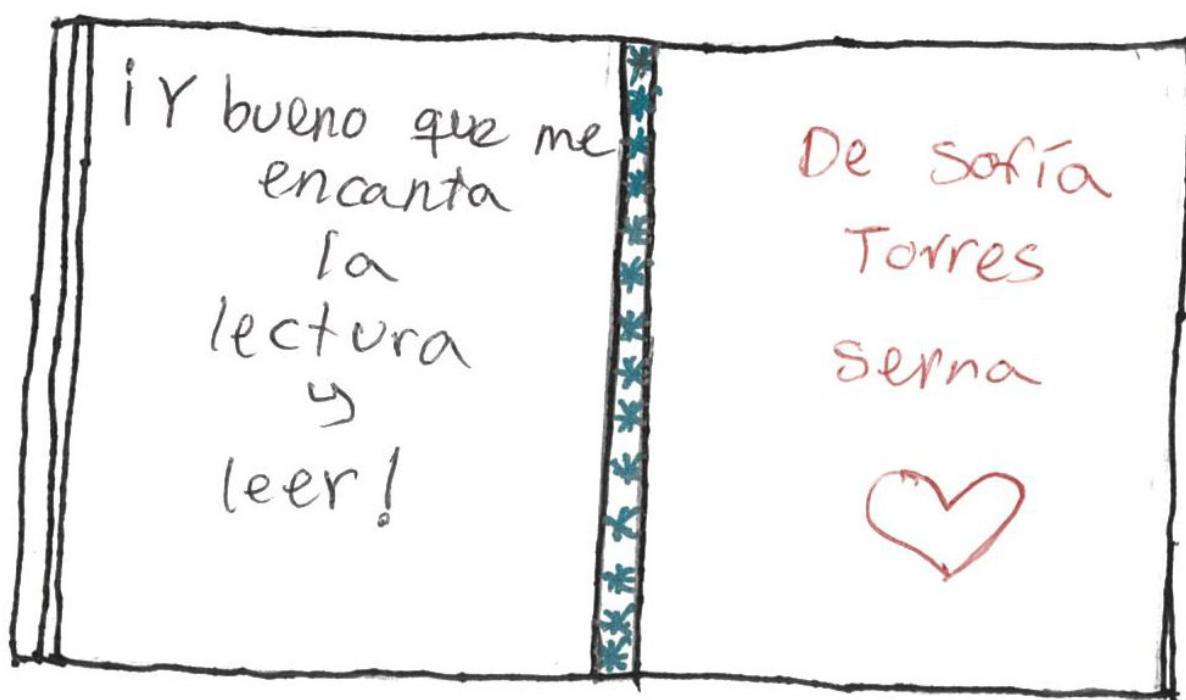 ¡Y bueno que me
encanta
la
lectura
y
leer!
De Sofía
Torres
Serna